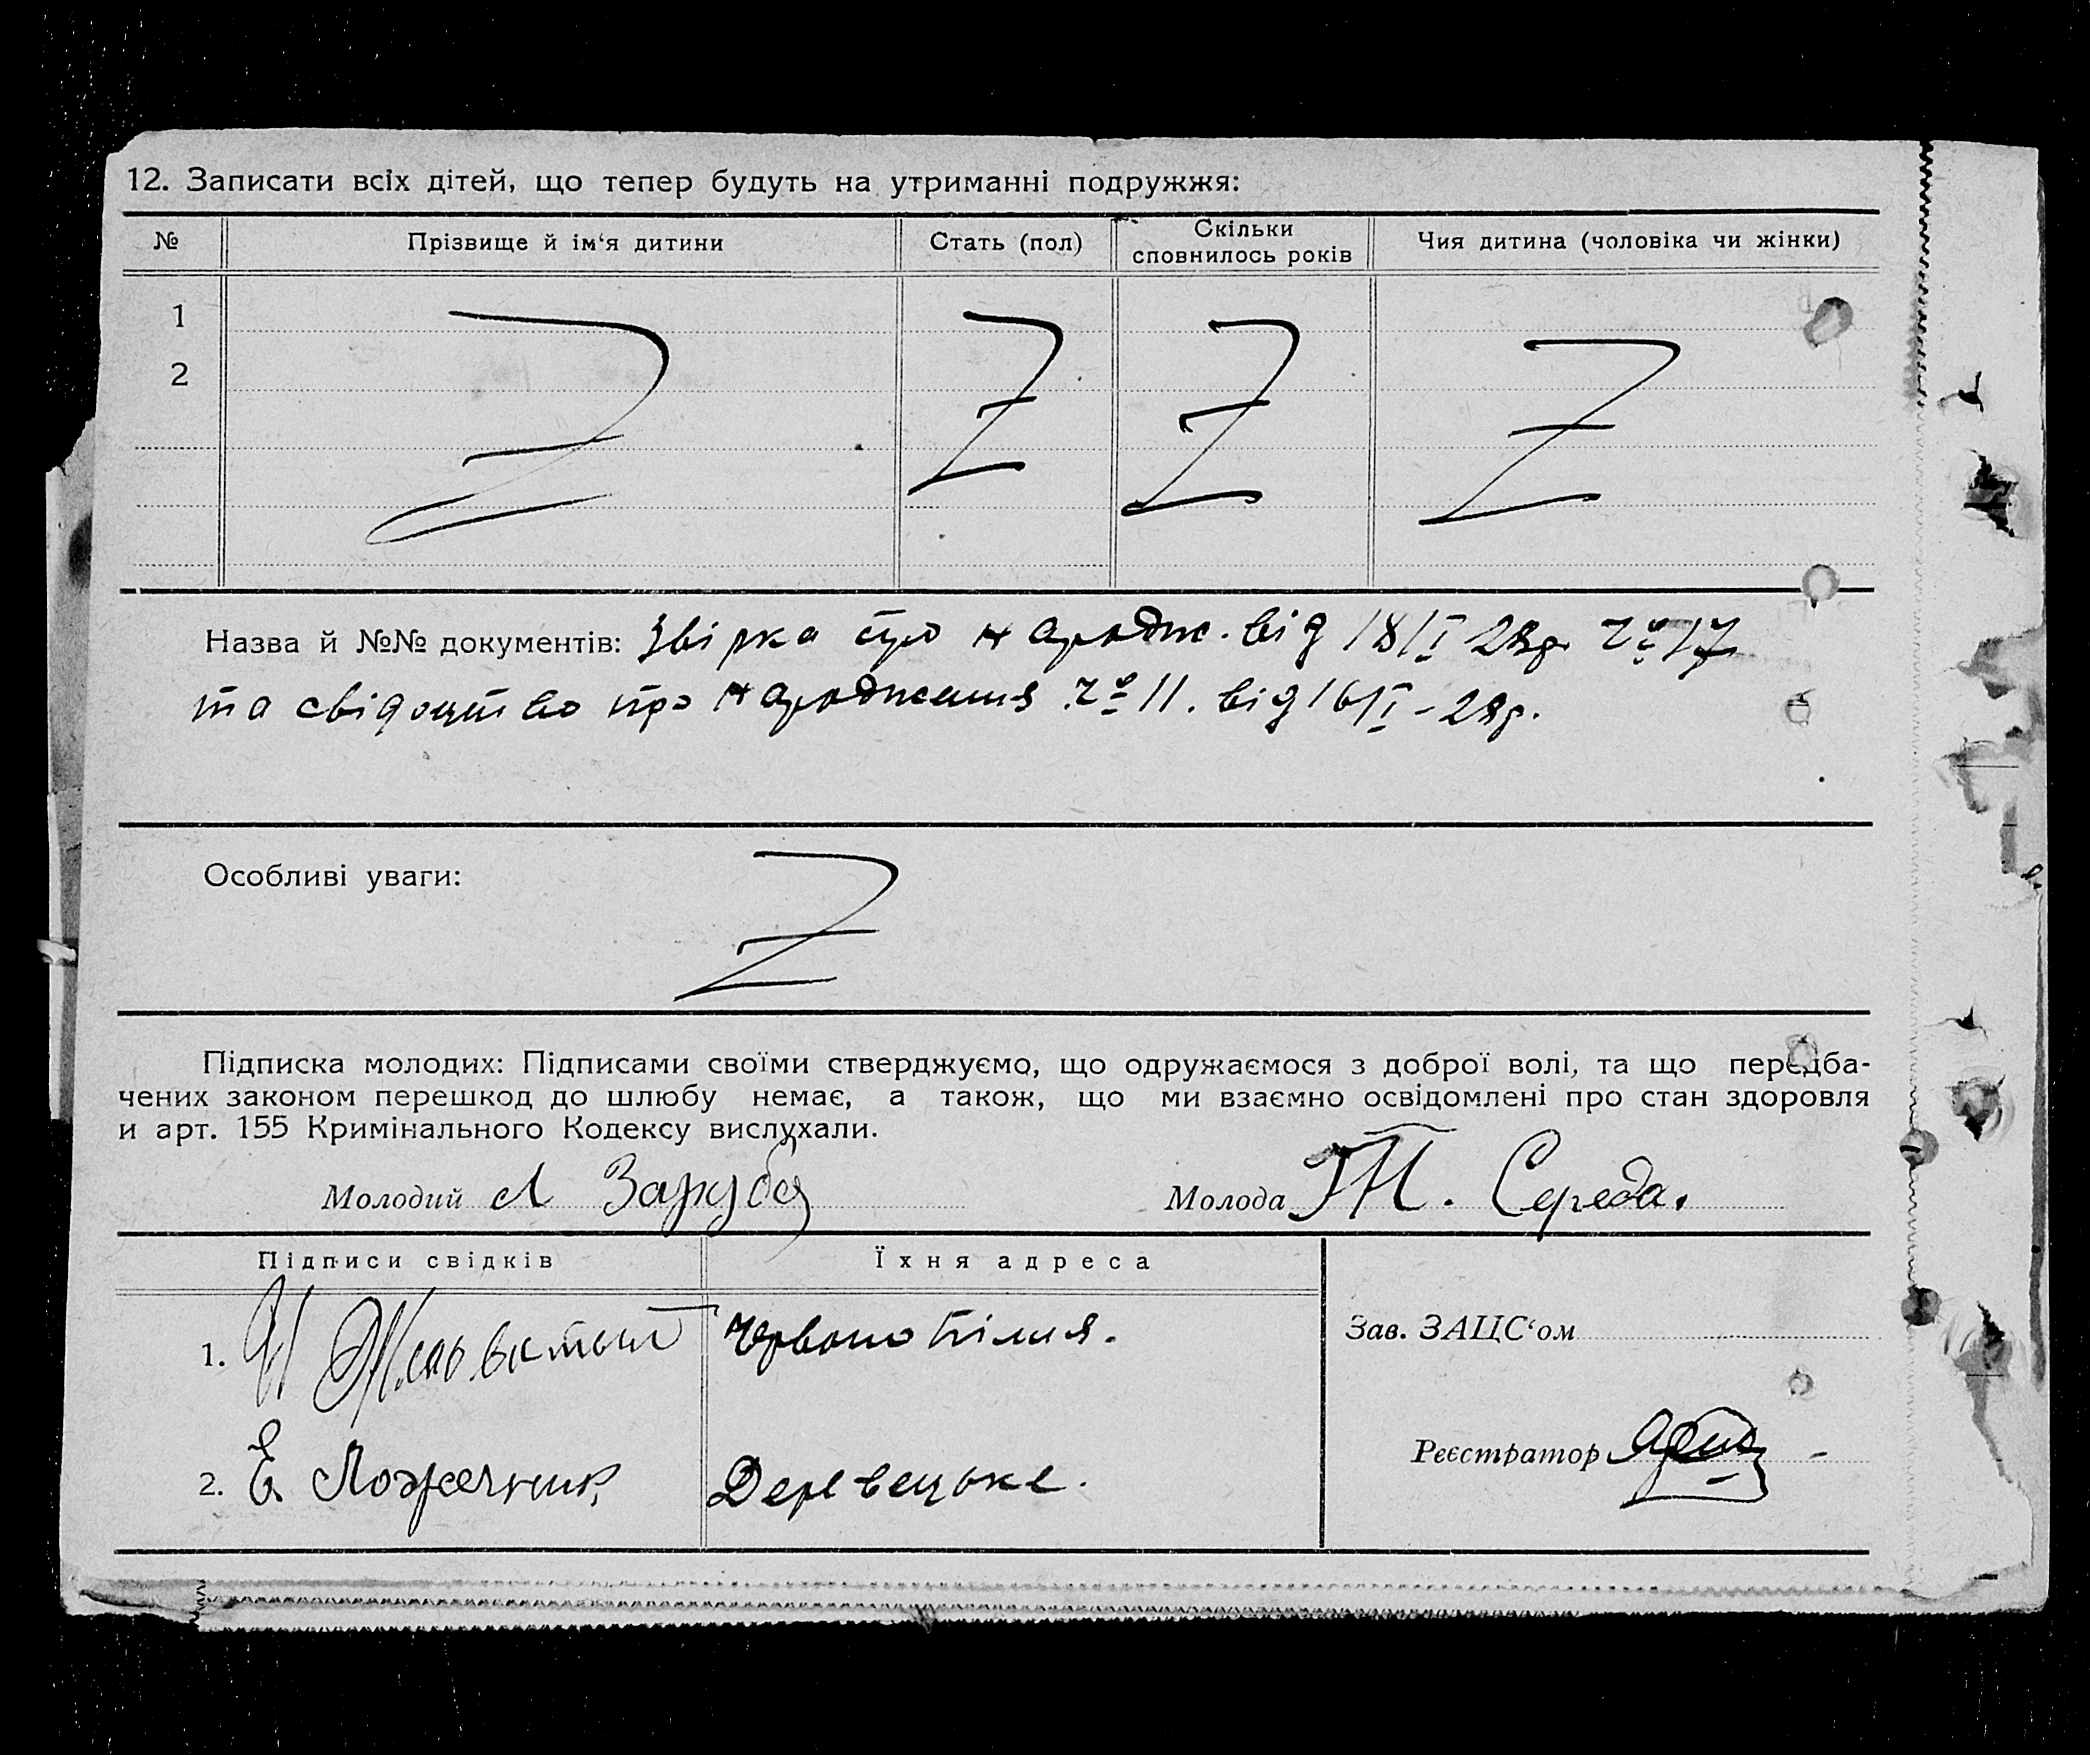 12. Записати всіх дітей, що тепер будуть на утриманні подружжя:
№ Прізвище й ім‘я дитини Стать (пол) Скільки сповнилось років Чия дитина (чоловіка чи жінки)
1
2
Назва й №№ документів: Звірка про народж. від 18/I 28р. Чо 17
та свідоцтво про народження Чо 11. від 16/I-28р.
Особливі уваги:
Підписка молодих: Підписами своїми стверджуємо, що одружаємося з доброї волі, та що передба-
чених законом перешкод до шлюбу немає, а також, що ми взаємно освідомлені про стан здоровля
и арт. 155 Кримінального Кодексу вислухали.
Молодий Л Заруба Молода М. Середа.
Підписи свідків Їхня адреса
1. Червоно Пілля.
Зав. ЗАЦС‘ом
2. Е. Ложечник Деревецьке.
Реєстратор